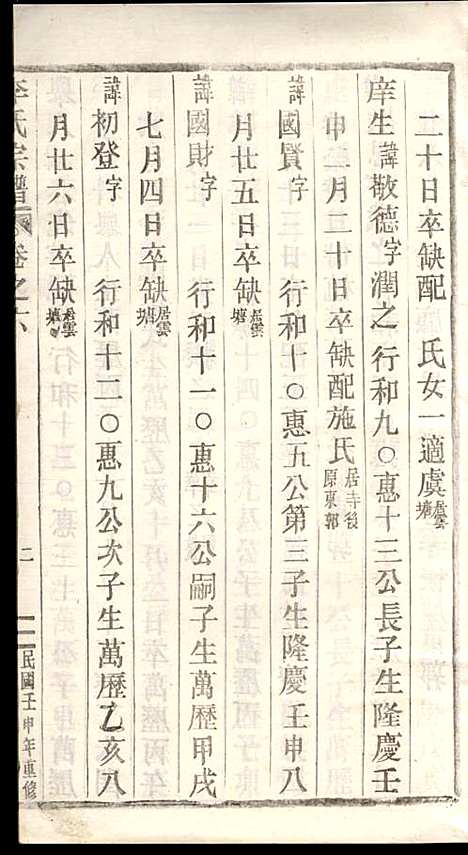 二十日卒缺配　氏女一適虞居雲塘
庠生諱敬德字潤之　行和九〇惠十三公長子生隆慶壬
申二月二十日卒缺配施氏居寺後原東郭
諱國賢字　行和十〇惠五公第三子生隆慶壬申八
月廿五日卒缺居雲塘
諱國財字　行和十一〇惠十六公嗣子生萬歷甲戌
七月四日卒缺居雲塘
諱初登字　行和十二〇惠九公次子生萬歷乙亥八
月廿六日卒缺居雲塘
李氏宗譜　卷之六　二　民國壬申年重修